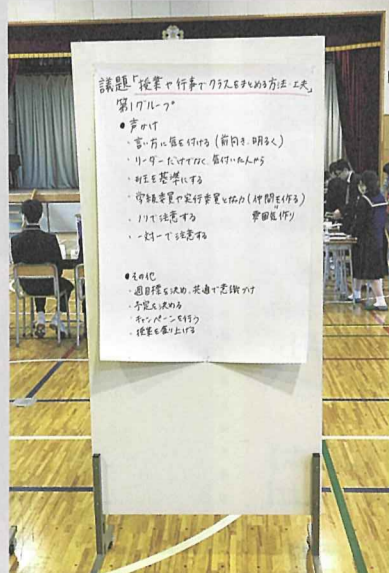 議題「授業や行事でクラスをまとめる方法・工夫」
第1グループ
● 声かけ
・言い方に気を付ける(前向き、明るく)
・リーダーだけでなく、気付いた人から
・班を基準にする
・学級委員や実行委員と協力(仲間を作る)
雰囲気作り
・1人で注意する
・一対一で注意する
● その他
・週目標を決め、共通で意識づけ
・予定を決める
・キャンペーンを行う
・授業を盛り上げる